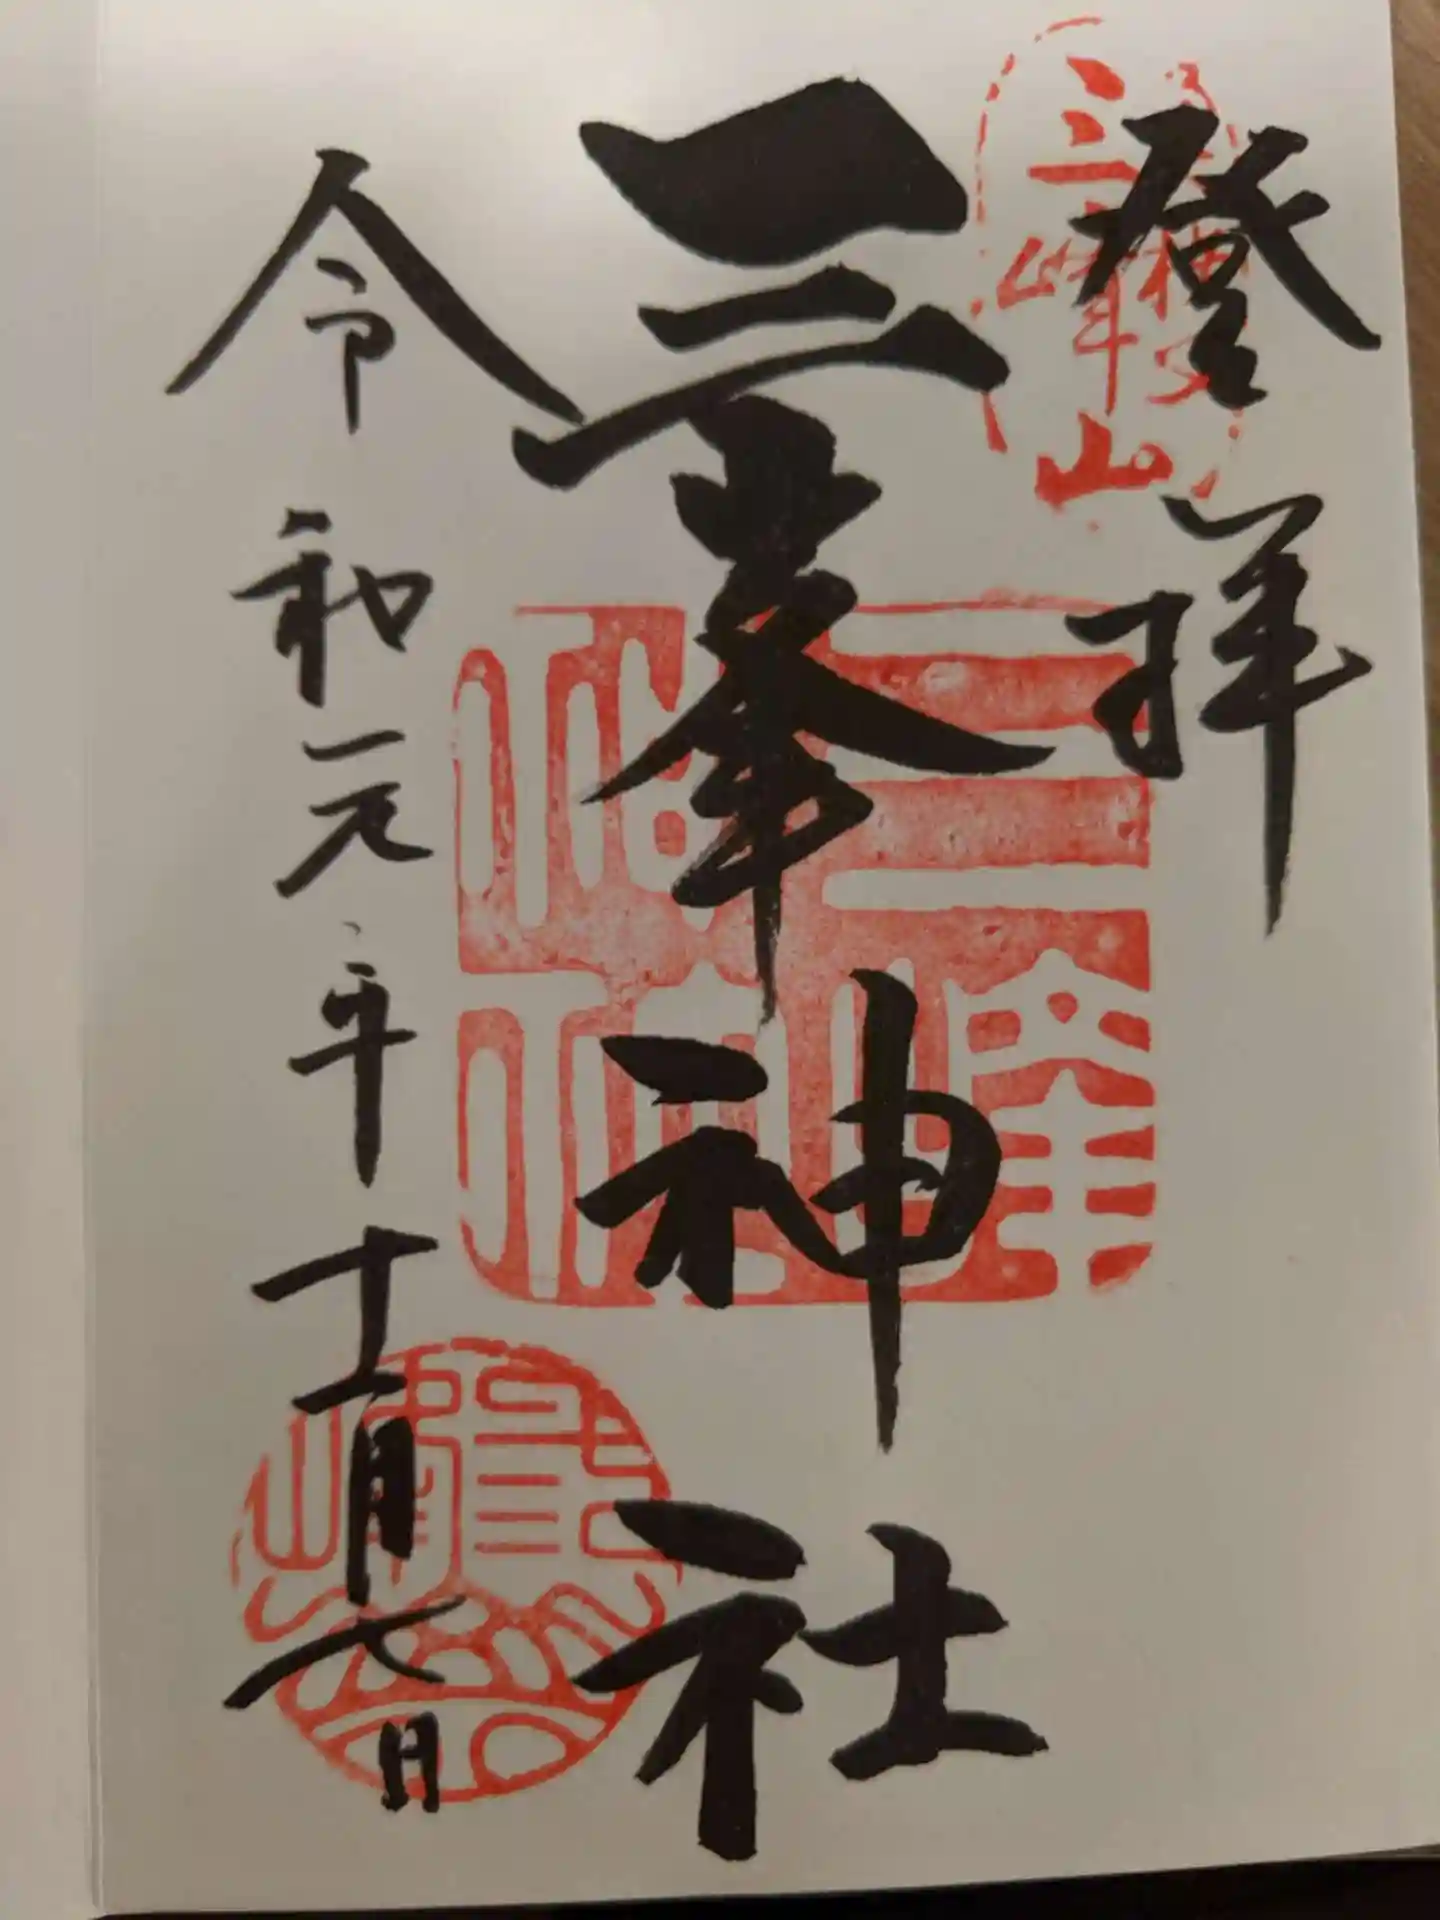 登拝
三峯神社
令和元年十一月七日
三峰山
三峰神社